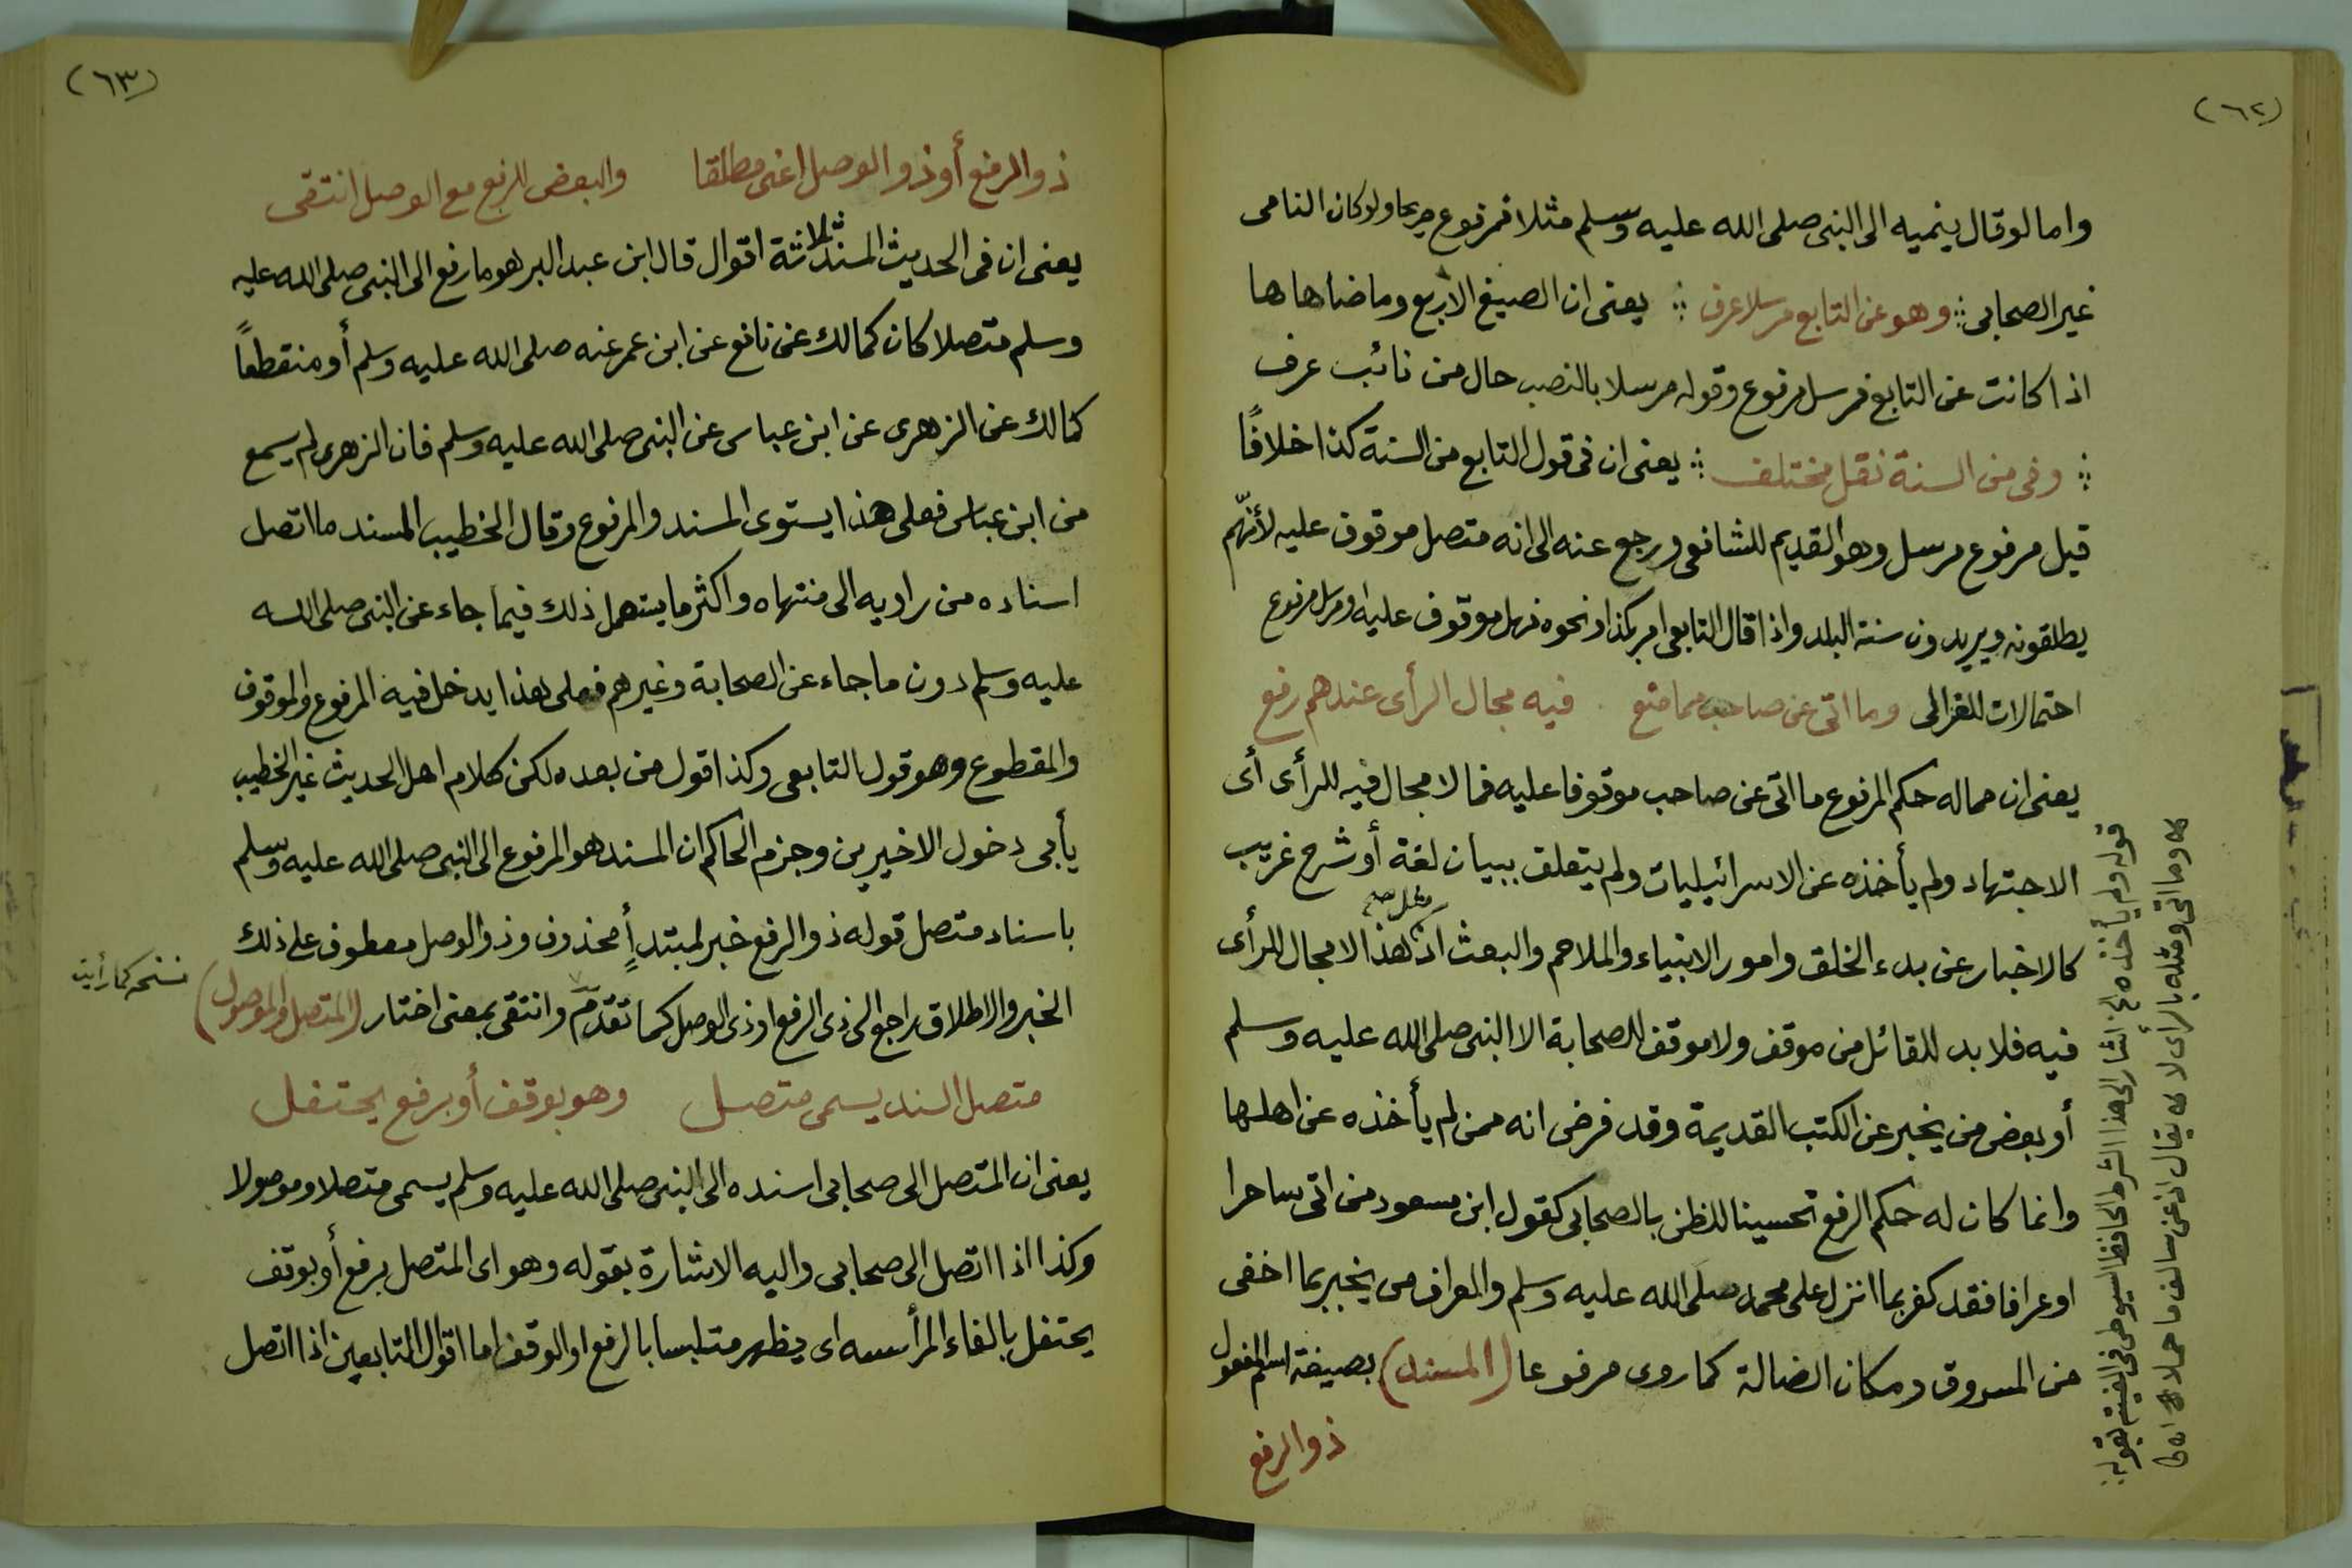 (٦٢)
واما لو قال ينميه الى النبى صلى الله عليه وسلم مثلا فمرفوع صريحا ولو كان النامى
غير الصحابى ؞ وهو عن التابع مرسلا عرف ؞ يعنى ان الصيغ الاربع وما ضاهاها
اذا كانت عن التابع فمرسل مرفوع وقوله مرسلا بالنصب حال من نائب عرف
؞ وفى من السنة نقل مختلف ؞ يعنى ان فى قول التابع من السنة كذا خلافًا
قيل مرفوع مرسل وهو القديم للشافعى ورجع عنه الى انه متصل موقوف عليه لأنّهم
يطلقونه ويريدون سنة البلد واذا قال التابعى امر بكذا ونحوه فهل موقوف عليه او مرسل مرفوع
احتمالات للغزالى وما اتى عن صاحب مما منع فيه مجال الرأى عندهم رفع
يعنى ان مما له حكم المرفوع ما اتى عن صاحب موقوفا عليه فما لا مجال فيه للرأى أى
الاجتهاد ولم يأخذه عن الاسرائيليات ولم يتعلق ببيان لغة أو شرح غريب
كالاخبار عن بدء الخلق وامور الانبياء والملاحم والبعث اذ مثل صح هذا لا مجال للرأى
فيه فلا بد للقائل من موقف ولا موقف للصحابة الا النبى صلى الله عليه وسلم
أو بعض من يخبر عن الكتب القديمة وقد فرض انه ممن لم يأخذه عن اهلها
وانما كان له حكم الرفع تحسينا للظن بالصحابى كقول ابن مسعود من اتى ساحرا
او عرافا فقد كفر بما انزل على محمد صلى الله عليه وسلم والعراف من يخبر بما اخفى
من المسروق ومكان الضالة كما روى مرفوعا (المسند) بصيغة اسم المفعول
ذو الرفع
قوله ولم يأخذه الخ اشار الى هذا الشرط الحافظ السيوطى فى الفيته بقوله
وما اتى ومثله بالرأى لا يقال اذ عن سالف ما حملا
(٦٣)
ذو الرفع أو ذو الوصل اعنى مطلقا والبعض للرفع مع الوصل انتقى
يعنى ان فى الحديث المسند ثلاثة اقوال قال ابن عبد البر هو ما رفع الى النبى صلى الله عليه
وسلم متصلا كان كمالك عن نافع عن ابن عمر عنه صلى الله عليه وسلم أو منقطعًا
كمالك عن الزهرى عن ابن عباس عن النبى صلى الله عليه وسلم فان الزهرى لم يسمع
من ابن عباس فعلى هذا يستوى المسند والمرفوع وقال الخطيب المسند ما اتصل
اسناده من راويه الى منتهاه واكثر ما يستعمل ذلك فيما جاء عن النبى صلى الله
عليه وسلم دون ما جاء عن الصحابة وغيرهم فعلى هذا يدخل فيه المرفوع والموقوف
والمقطوع وهو قول التابعى وكذا قول من بعده لكن كلام اهل الحديث غير الخطيب
يأبى دخول الاخيرين وجزم الحاكم ان المسند هو المرفوع الى النبى صلى الله عليه وسلم
باسناد متصل قوله ذو الرفع خبر لمبتدأٍ محذوف وذو الوصل معطوف على ذلك
الخبر والاطلاق راجع الى ذى الرفع او ذى الوصل كما تقدّم وانتقى بمعنى اختار (المتصل والموصول)
نسخه كما رأيت
متصل السند يسمى متصل وهو بوقف أو برفع يحتفل
يعنى ان المتصل الى صحابى اسنده الى النبى صلى الله عليه وسلم يسمى متصلا وموصولا
وكذا اذا اتصل الى صحابى واليه الاشارة بقوله وهو اى المتصل برفع أو بوقف
يحتفل بالفاء المرأسه اى يظهر متلبسا بالرفع او الوقف اما اقوال التابعين اذا اتصل